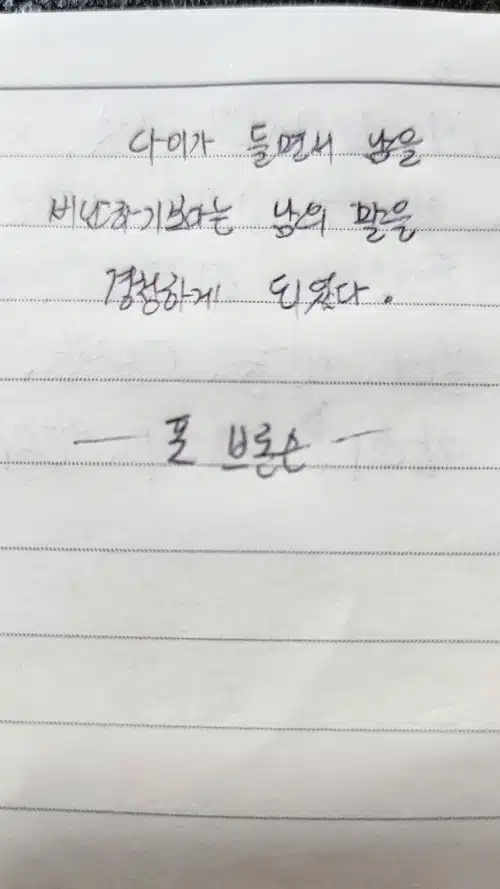 나이가 들면서 남을
비난하기보다는 남의 말을
경청하게 되었다.
— 포 브론슨 —